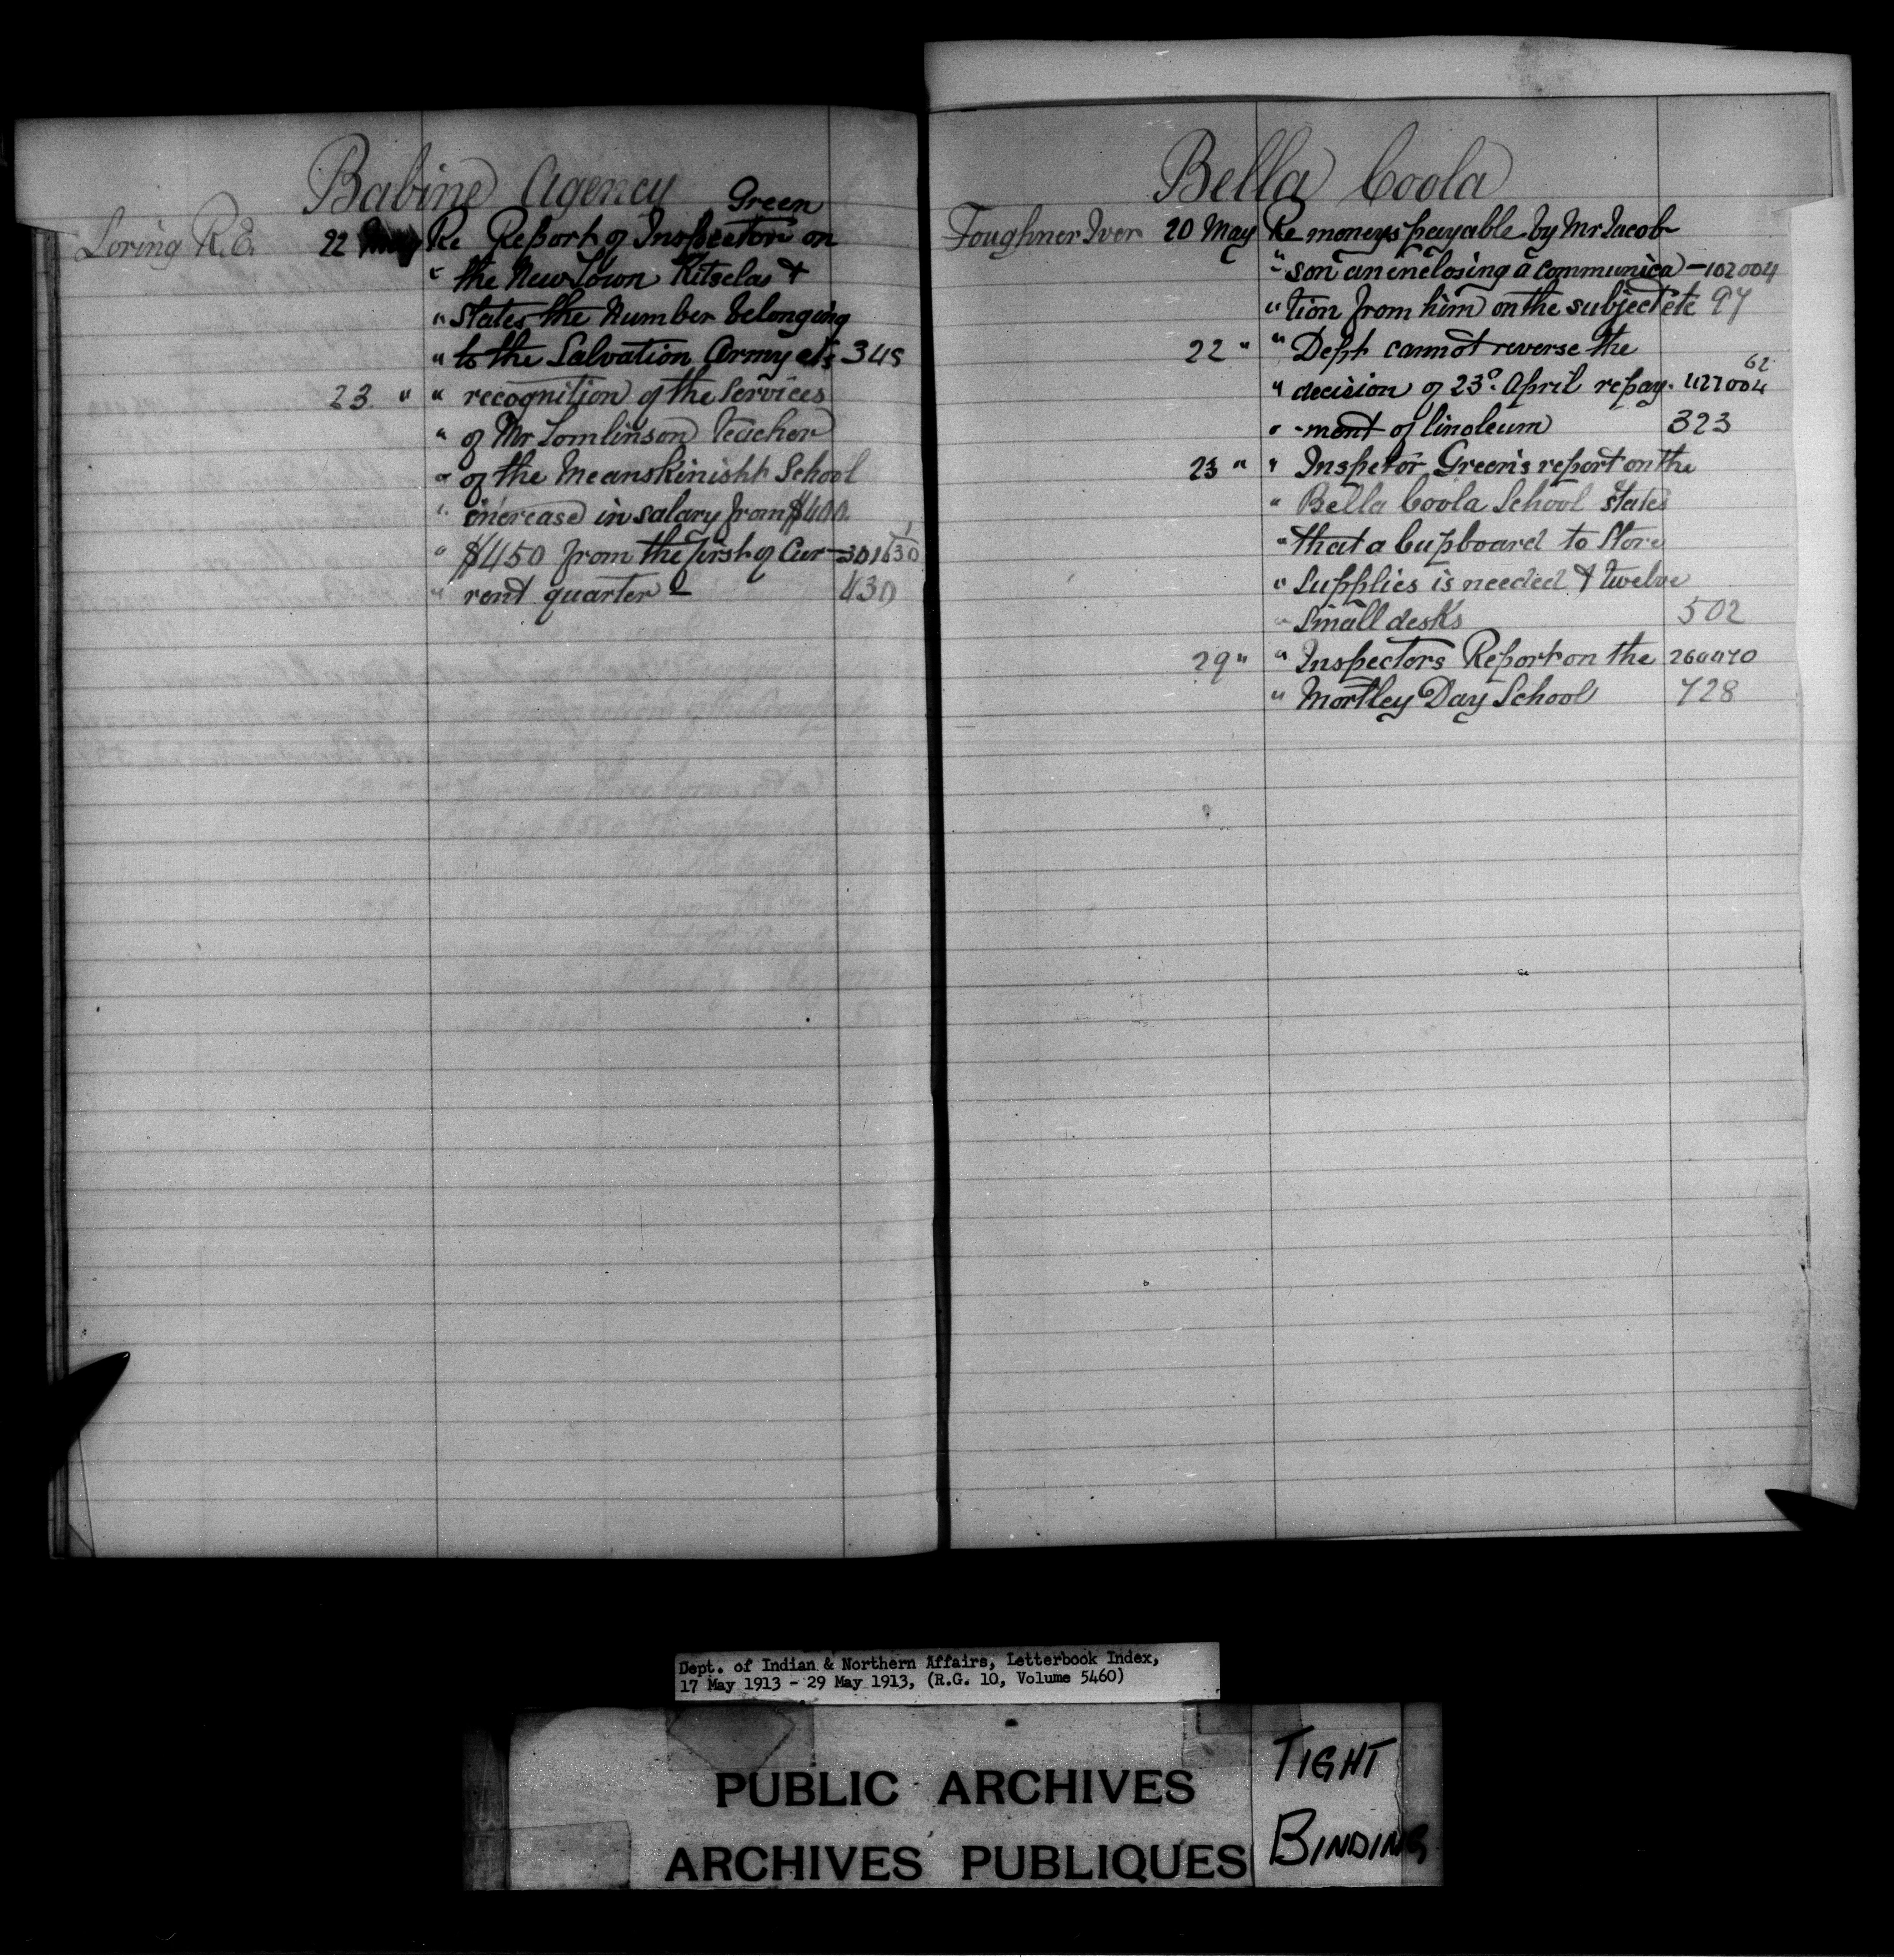 Babine Agency
Green
Loring R. E. 22 May Re Report of Inspector on
" the New Town Kitselas &
" States the Number belonging
" to the Salvation Army etc 345
23 " " recognition of the Services
" of Mr Tomlinson Teacher
" of the Meanskinisht School
" increase in salary from $400
" $450 from the first of Cur- 301630
" rent quarter - 430
Bella Coola
Foughner Iver 20 May Re moneys payable by Mr Jacob-
" son an enclosing a communica - 102004
" tion from him on the subject etc 97
22 " " Dept cannot reverse the
62
" decision of 23d. April repay. 427004
" -ment of linoleum 323
23 " " Inspetor Green's report on the
" Bella Coola School States
" that a Cupboard to Store
" Supplies is needed & twelve
" Small desks 502
29 " " Inspectors Report on the
" Mortley Day School 728
Dept. of Indian & Northern Affairs, Letterbook Index,
17 May 1913 - 29 May 1913, (R.G. 10, Volume 5460)
PUBLIC ARCHIVES
ARCHIVES PUBLIQUES
TIGHT
BINDING